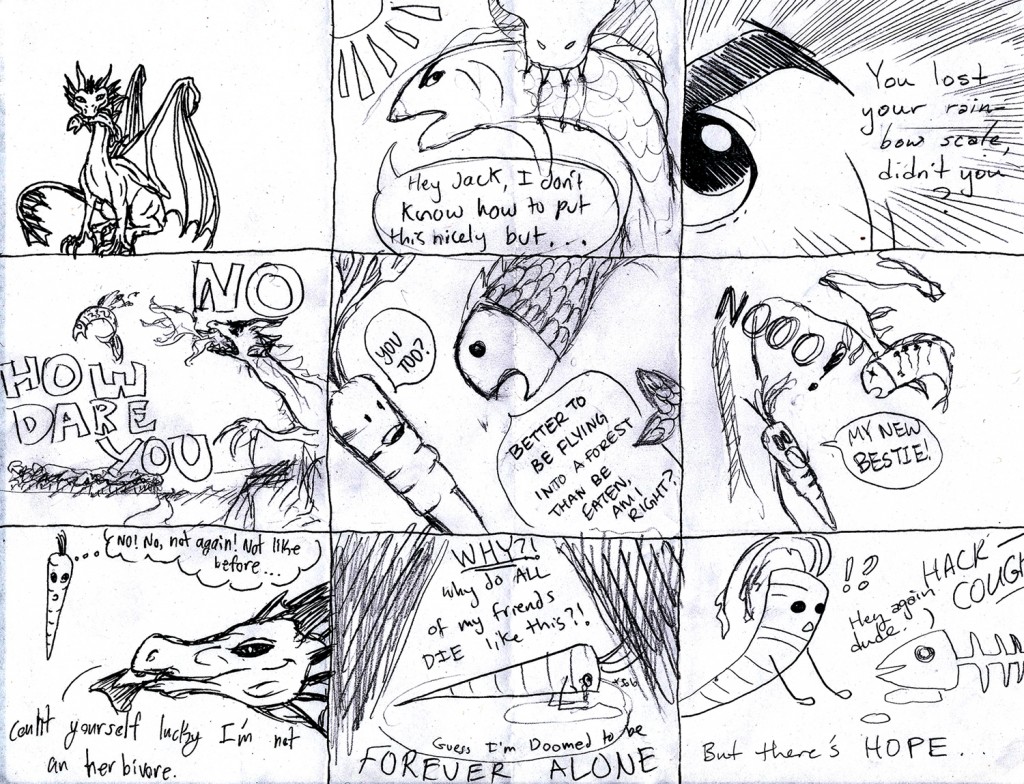 Hey Jack, I don't
know how to put
this nicely but...
You lost
your rain-
bow scale,
didn't you
?
NO
HOW
DARE
YOU
YOU
TOO?
BETTER TO
BE FLYING
INTO A FOREST
THAN BE
EATEN,
AM I
RIGHT?
NOOO!
MY NEW
BESTIE!
No! No, not again! Not like
before...
Count yourself lucky I'm not
an herbivore.
WHY?!
Why do ALL
of my friends
DIE like this?!
*sob*
Guess I'm Doomed to be
FOREVER ALONE
!?
Hey again,
dude. :)
HACK
COUGH
But there's HOPE...